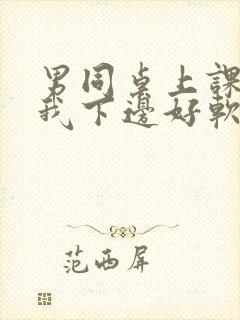 男同桌上課
我下邊好軟
范西屏